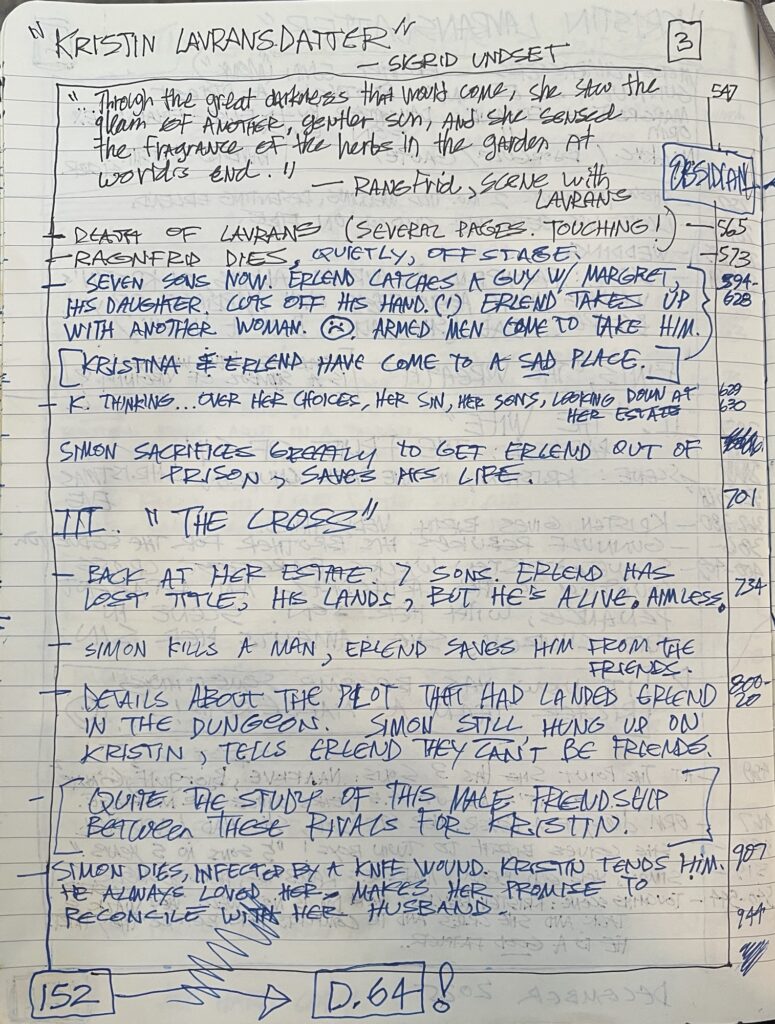 "KRISTIN LAVRANSDATTER"
— SIGRID UNDSET
3
"...Through the great darkness that would come, she saw the
gleam of ANOTHER, gentler sun, AND she sensed
the fragrance of the herbs in the garden AT
world's END."
— RANGFRID, SCENE with
LAVRANS
547
OBSIDIAN
- DEATH OF LAVRANS (SEVERAL PAGES. TOUCHING!) — 565
- RAGNFRID DIES, QUIETLY, OFF STAGE. 573
- SEVEN SONS NOW. ERLEND CATCHES A GUY W/ MARGRET, 594-
HIS DAUGHTER. CUTS OFF HIS HAND. (!) ERLEND TAKES UP 628
WITH ANOTHER WOMAN. ☹. ARMED MEN COME TO TAKE HIM.
[KRISTINA & ERLEND HAVE COME TO A SAD PLACE.]
- K. THINKING... OVER HER CHOICES, HER SIN, HER SONS, LOOKING DOWN AT 629
HER ESTATE 630
SIMON SACRIFICES GREATLY TO GET ERLEND OUT OF
PRISON, SAVES HIS LIFE.
701
III. "THE CROSS"
- BACK AT HER ESTATE. 7 SONS. ERLEND HAS
LOST TITLE, HIS LANDS, BUT HE'S ALIVE. AIMLESS. 734
- SIMON KILLS A MAN, ERLEND SAVES HIM FROM THE
FRIENDS.
- DETAILS ABOUT THE PLOT THAT HAD LANDED ERLEND 800-
IN THE DUNGEON. SIMON STILL HUNG UP ON 20
KRISTIN, TELLS ERLEND THEY CAN'T BE FRIENDS.
- [QUITE THE STUDY OF THIS MALE FRIENDSHIP
BETWEEN THESE RIVALS FOR KRISTIN.]
- SIMON DIES, INFECTED BY A KNIFE WOUND. KRISTIN TENDS HIM. 907
HE ALWAYS LOVED HER - MAKES HER PROMISE TO
RECONCILE WITH HER HUSBAND. 944
152 → D.64!